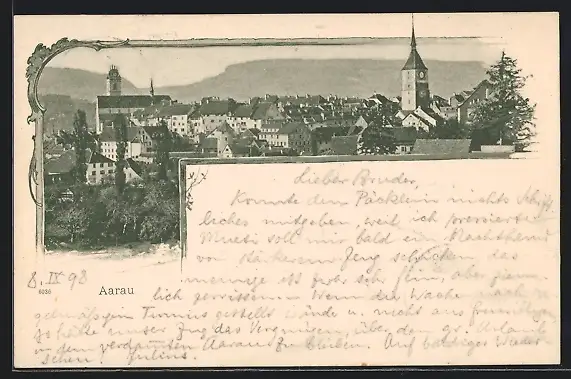 Aarau
8. IX 98
6036
Lieber Bruder,
Konnte dem Päcklein nichts schrift-
liches mitgeben, weil ich pressierte.
Muetti soll mir bald ein Nachthemd
von stärkerem Zeug schicken, das
meinige ist zwar sehr fein, aber ziem-
lich zerrissen. Wenn die Wache nach
gewöhnlichen Turnus gestellt würde u. nicht aus freiwilligen
so hätte unser Zug das Vergnügen, über den gr. Urlaub
in dem verdammten Aarau zu bleiben. Auf baldiges Wieder-
sehen! Julius.